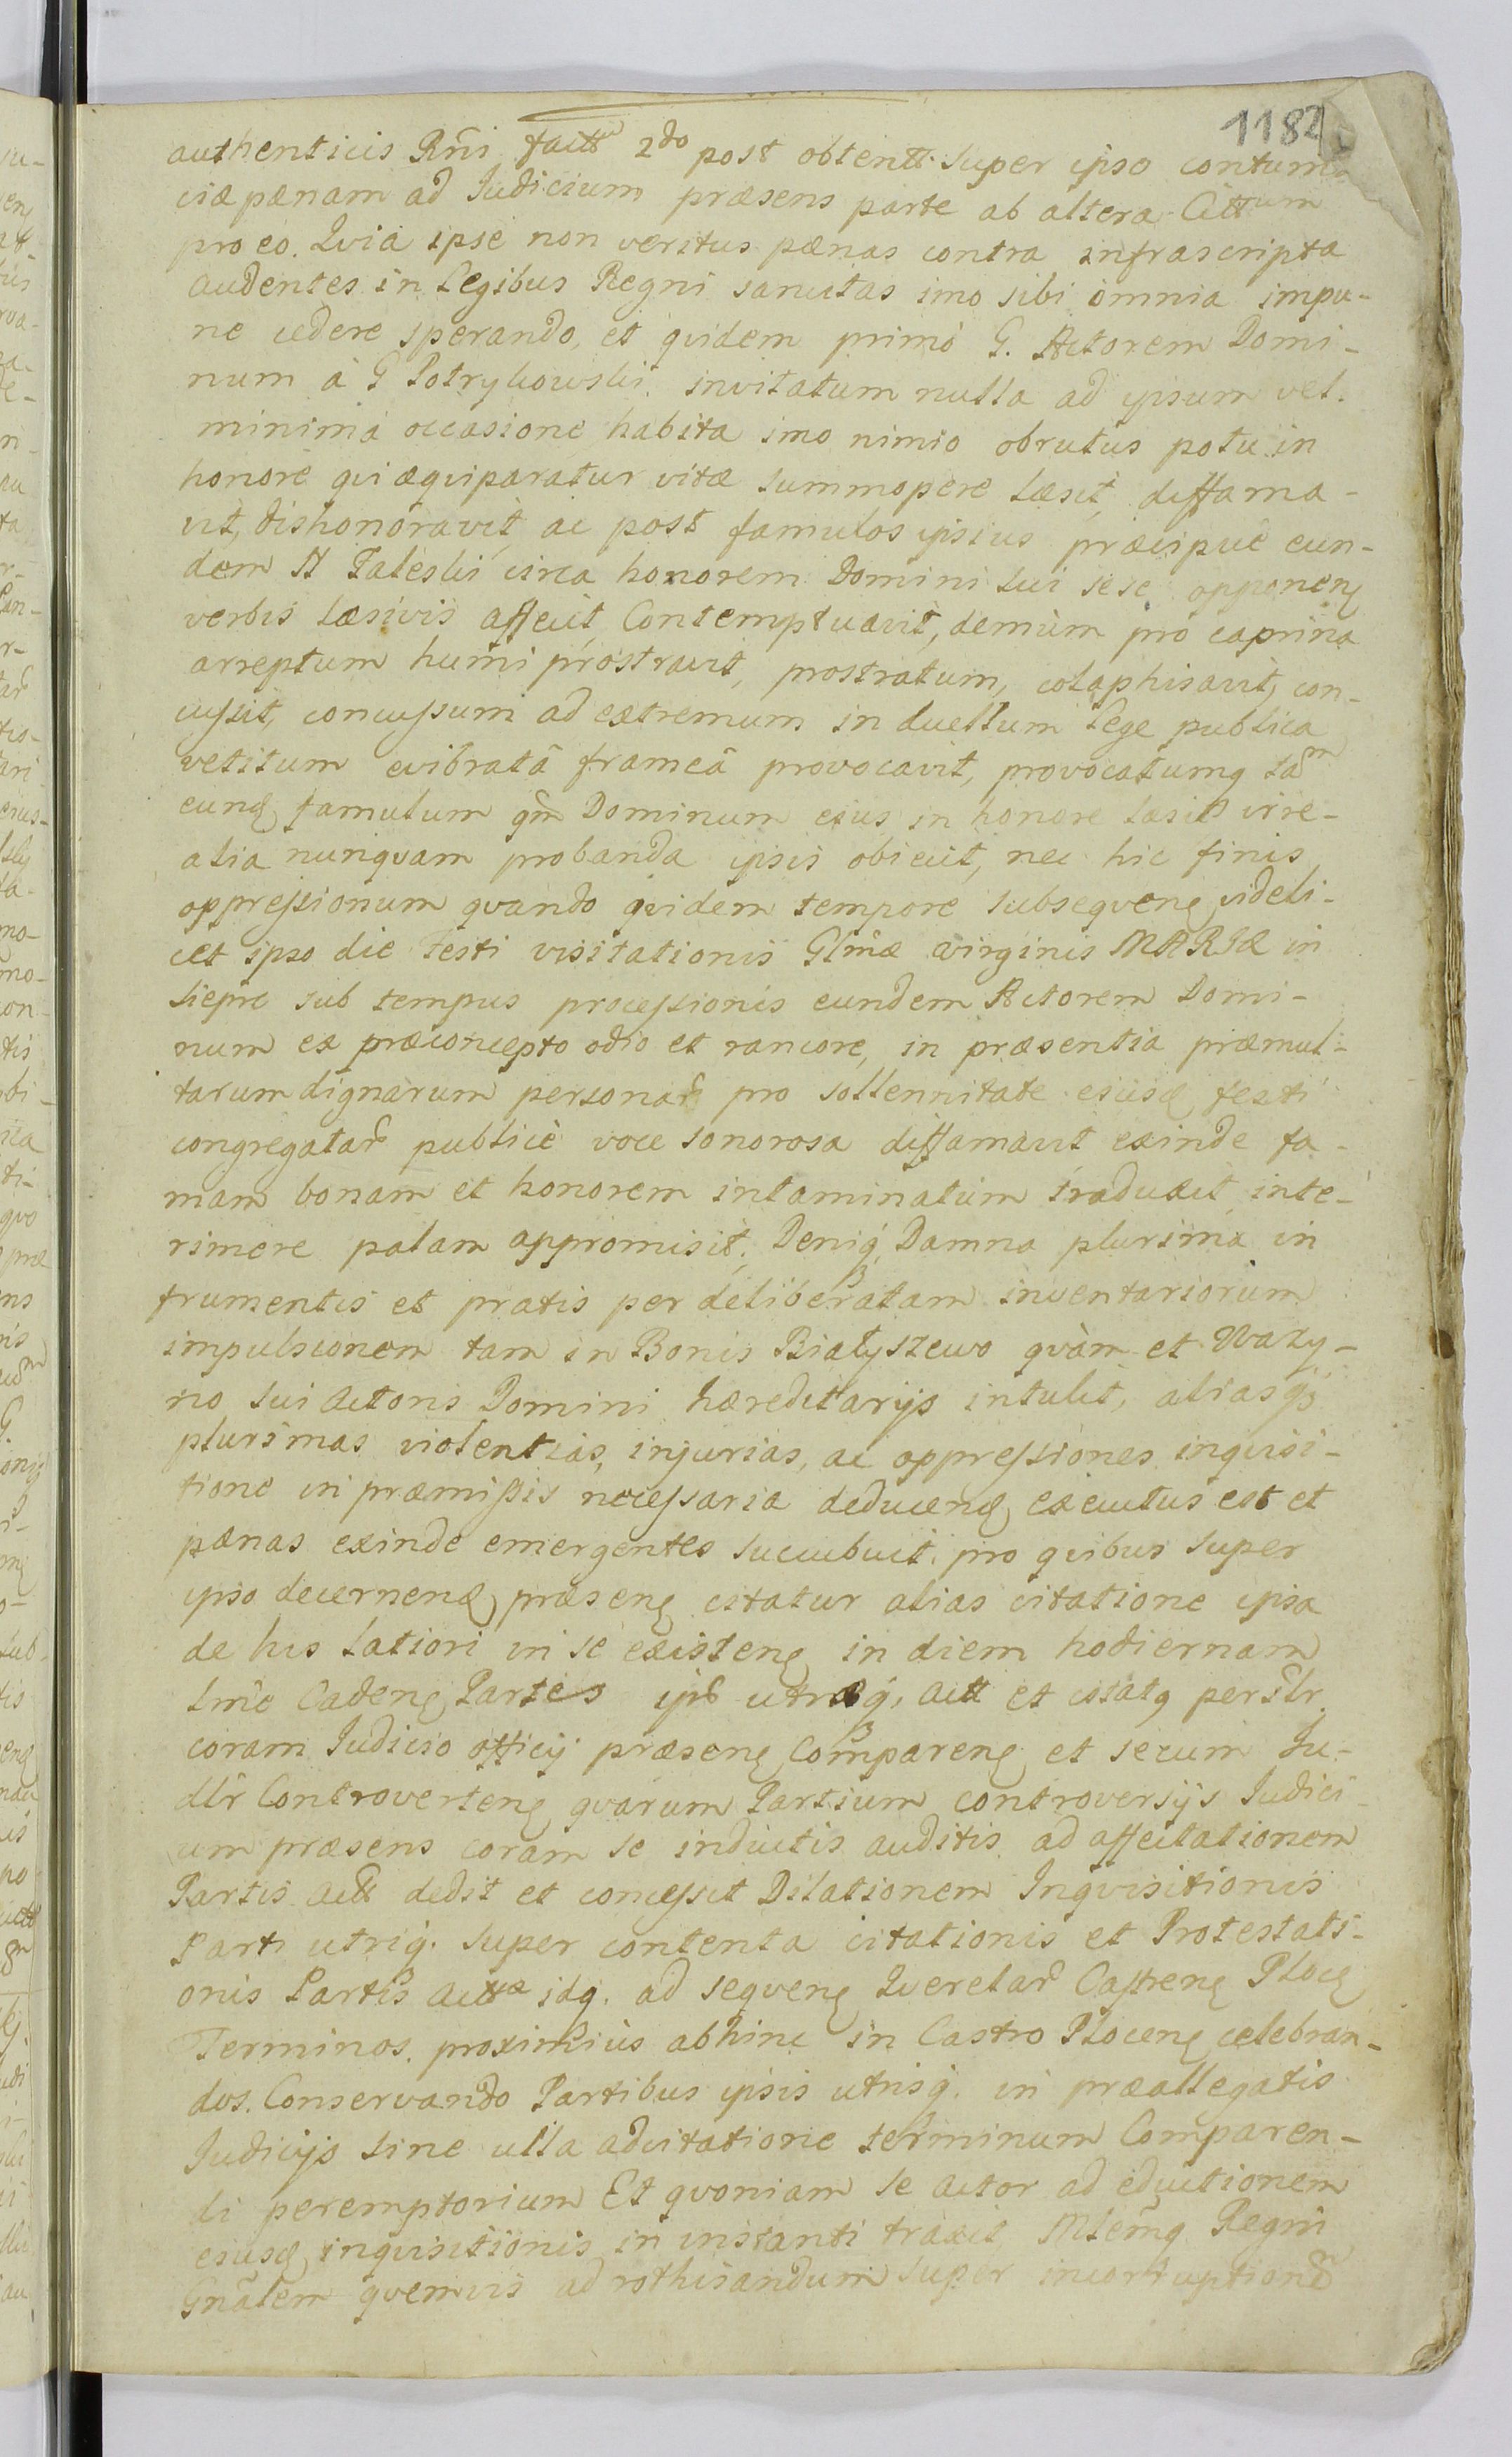 1182
authenticis Rñi factt 2do post obtentt. super ipso contuma
ciæ pænam ad Judicium præsens parte ab altera Cittum
pro eo. Qvia ipse non veritus pænas contra infrascripta
audentes in Legibus Regni sancitas imo sibi omnia impu-
ne cedere sperando, et qvidem primò G. Actorem Domi-
num à G Potrykowski invitatum nulla ad ipsum vel
minima occasione habita imo nimio obrutus potu in
honore qvi æqviparatur vitæ summopere læsit, diffama-
vit, dishonoravit, ac post famulos ipsius præcipuè eun-
dem N Faleski circa honorem Domini sui sese opponenȩ
verbis læsivis affecit, Contemptuavit, demùm pro caprina
arreptum humi prostravit, prostratum, colaphisavit, con-
cussit, concussum ad extremum in duellum Lege publica
vetitum evibratâ frameâ provocavit, provocatumq tam
eunȩ famulum qm̃ Dominum ejus in honore læsit irre-
alia nunqvam probanda ipsis obiecit, nec hic finis
oppressionum qvando qvidem tempore subseqvenȩ videli-
cet ipso die Festi visitationis Glmæ virginis MARIÆ in
Siepre sub tempus processionis eundem Actorem Domi-
num ex præconcepto odio et rancore, in præsentia præmul-
tarum dignarum personar pro sollennitate ejusȩ festi
congregatar publicè voce sonorosa diffamavit exinde fa-
mam bonam et honorem intaminatum traduxit, inte-
rimere palam appromisit, Deniq Damna plurima in
frumentis et pratis per deliberatam inventariorum
impulsionem tam in Bonis Białyszewo qvàm et Wazy-
no sui Actoris Domini hæreditarijs intulit, aliasqȝ
plurimas violentias, injurias, ac oppressiones inqvisi-
tione in præmissis necessaria deducenȩ executus est et
pænas exinde emergentes succubuit. pro qvibus super
ipso decernenȩ præsenȩ citatur alias citatione ipsa
de his latiori in se existenȩ in diem hodiernam
lmê Cadenȩ Partes ips utræq. Actt et citatq persl̃r
coram Judicio officij præsenȩ Comparenȩ et secum Ju-
dl̃r Controvertenȩ qvarum Partium controversijs Judici-
um præsens coram se inductis auditis ad affectationem
Partis Actt dedit et concessit Dilationem Inqvisitionis
Parti utriq. super contenta citationis et Protestati-
onis Partis Acttæ idq. ad seqvenȩ Qverelar Castrenȩ Plocȩ
Terminos. proximiùs abhinc in Castro Plocenȩ celebran-
dos. Conservando Partibus ipsis utrisq. in præallegatis
Judicijs sine ulla adcitatione terminum Comparen-
di peremptorium Et qvoniam se Actor ad eductionem
ejusȩ inqvisitionis in instanti traxit Mlẽmq Regni
Gnãlem qvemvis ad rothisandum super incorruptione